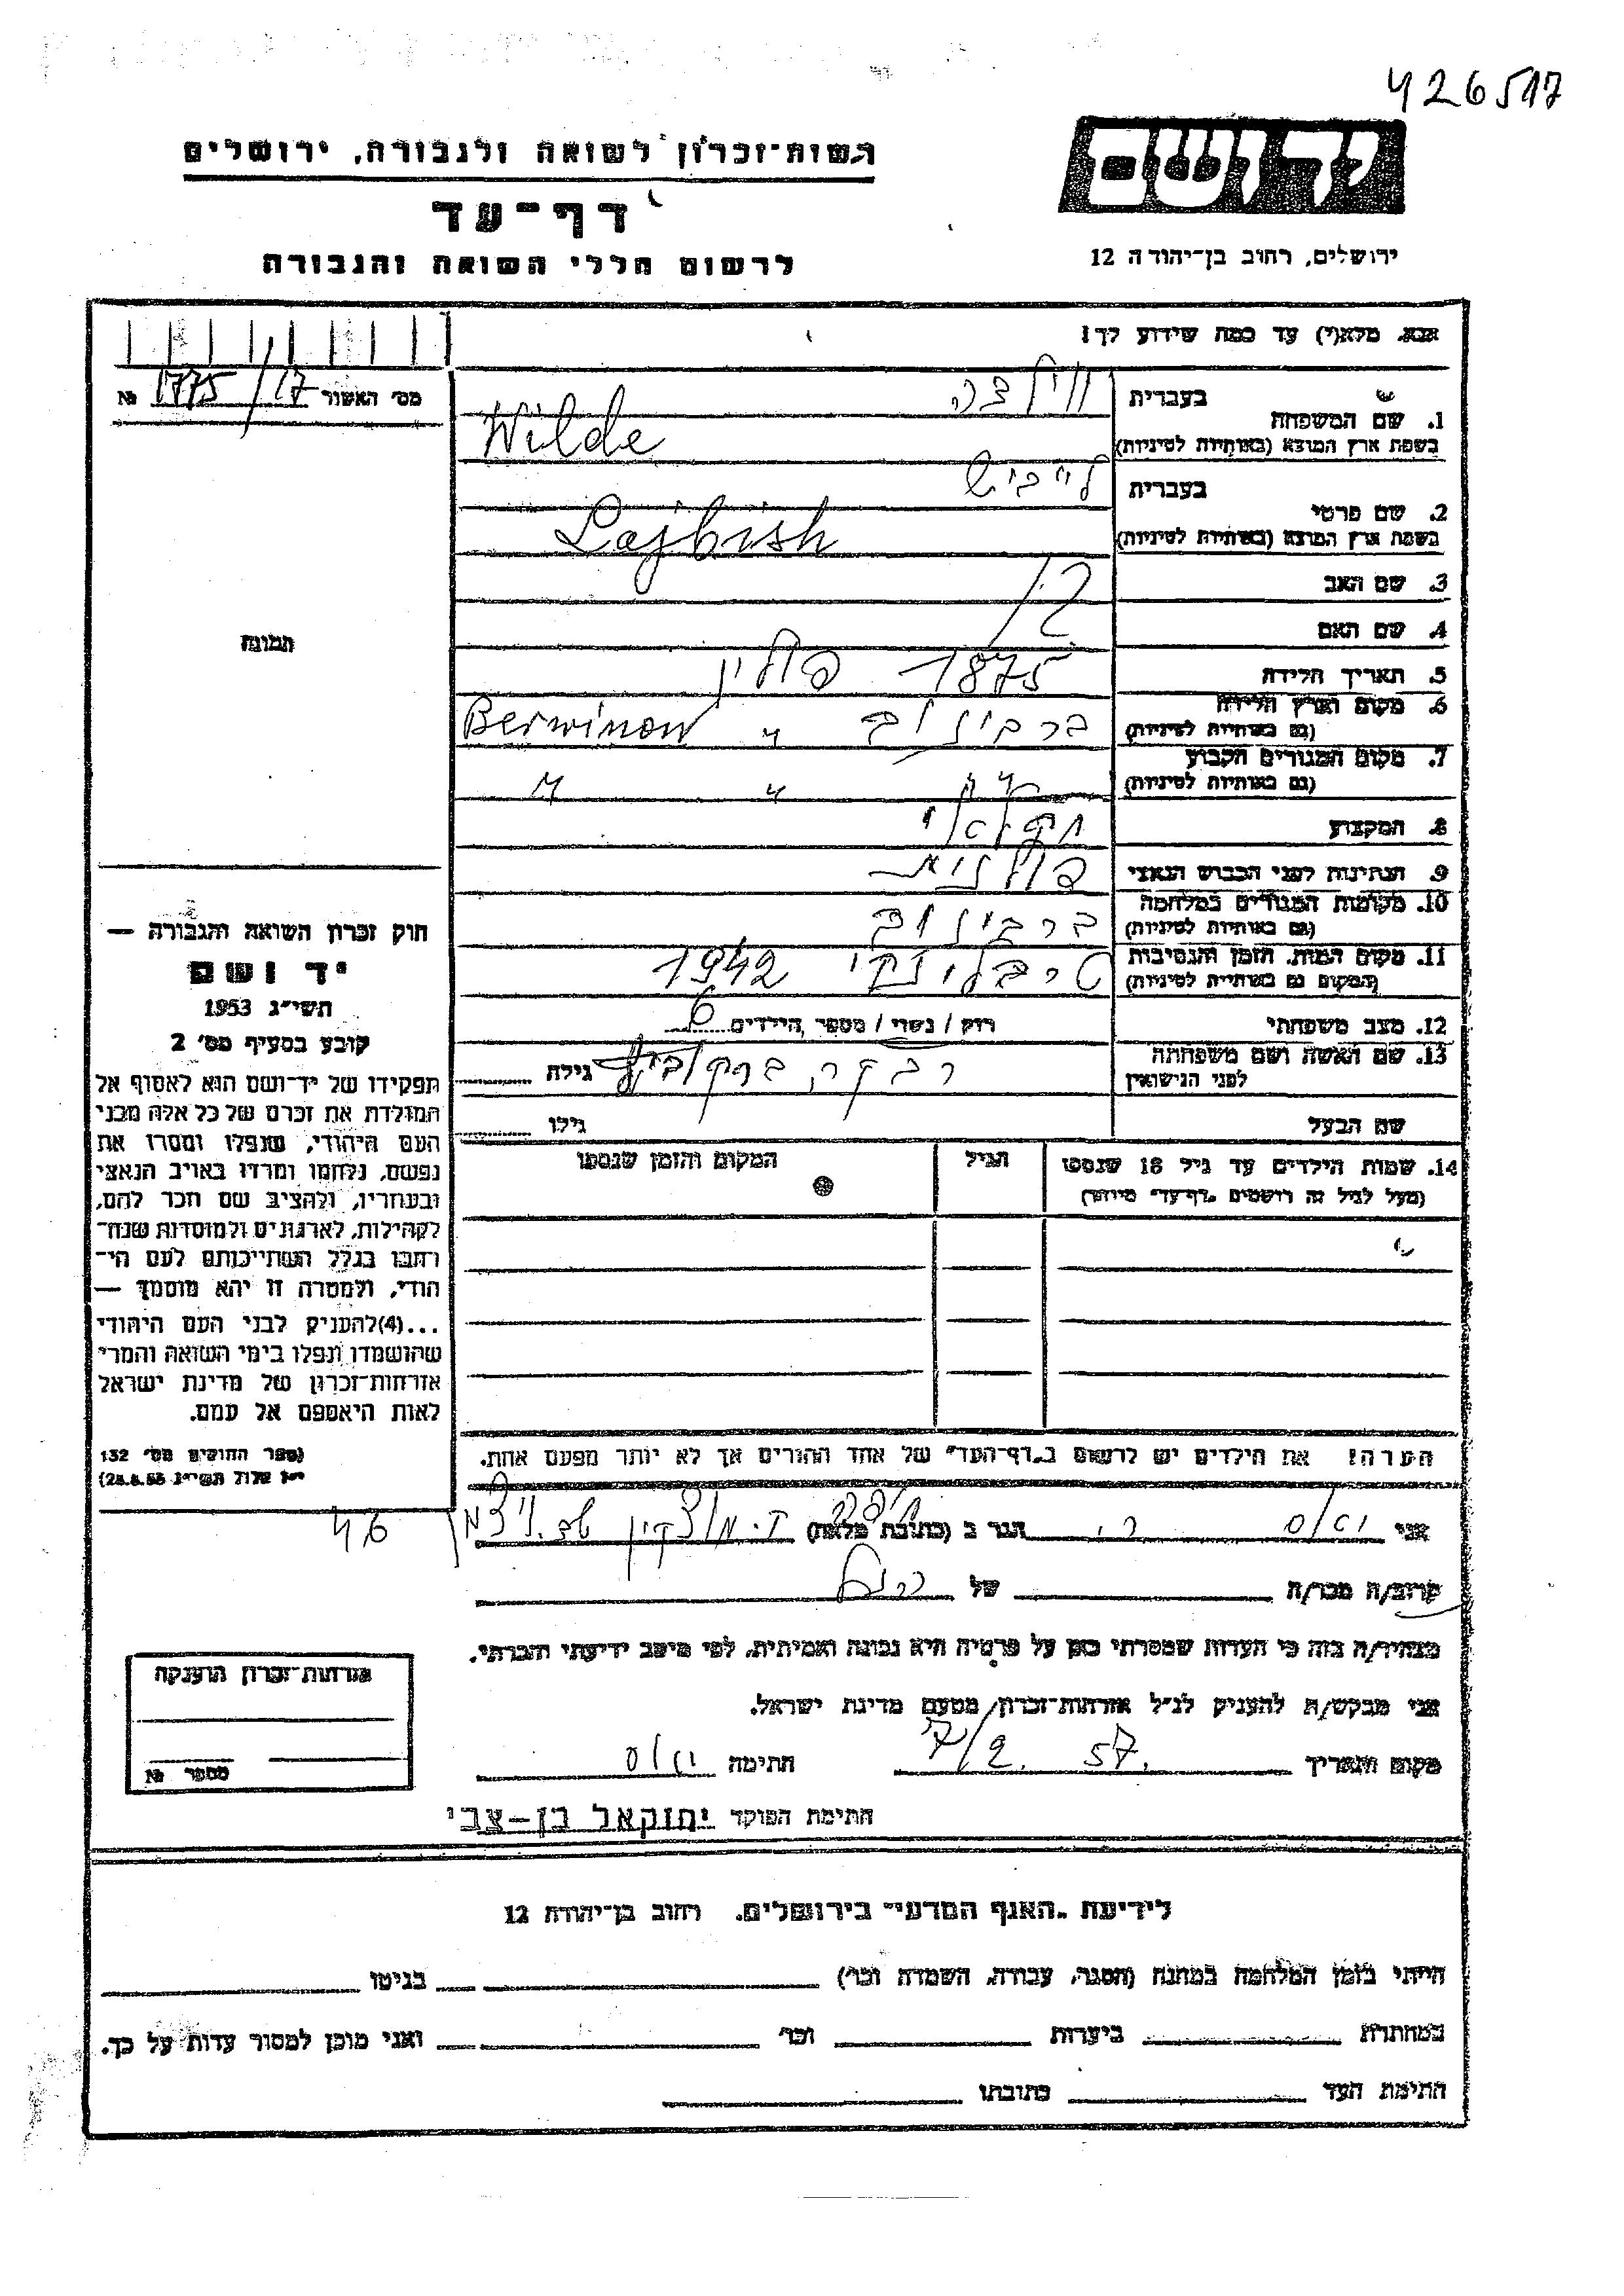 426517
רשות-זכרון לשואה ולגבורה, ירושלים
יד ושם
דף-עד
לרשום חללי השואה והגבורה
ירושלים, רחוב בן-יהודה 12
אנא, מלא(י) עד כמה שידוע לך!
מס' האשור 1775/17 №
1. שם המשפחה בעברית ווילדה
בשפת ארץ המוצא (באותיות לטיניות) Wilde
2. שם פרטי בעברית לייביש
בשפת ארץ המוצא (באותיות לטיניות) Lajbish
3. שם האב
4. שם האם
5. תאריך הלידה 1875 פולין
6. מקום וארץ הלידה (גם באותיות לטיניות) ברבינוב " Berwinow
7. מקום המגורים הקבוע (גם באותיות לטיניות) " " "
8. המקצוע חקלאי
9. הנתינות לפני הכבוש הנאצי פולנית
10. מקומות המגורים במלחמה (גם באותיות לטיניות) ברבינוב
11. מקום המות, הזמן והנסיבות (המקום גם באותיות לטיניות) טרבלינקי 1942
12. מצב משפחתי רוק / נשוי / מספר הילדים 6
13. שם האשה ושם משפחתה לפני הנישואין רבקה ברקוביץ גילה
שם הבעל גילו
14. שמות הילדים עד גיל 18 שנספו
(מעל לגיל זה רושמים "דף-עד" מיוחד)
הגיל
המקום והזמן שנספו
תמונה
חוק זכרון השואה והגבורה —
יד ושם
תשי"ג 1953
קובע בסעיף מס' 2
תפקידו של יד-ושם הוא לאסוף אל
המולדת את זכרם של כל אלה מבני
העם היהודי, שנפלו ומסרו את
נפשם, נלחמו ומרדו באויב הנאצי
ובעוזריו, ולהציב שם וזכר להם,
לקהילות, לארגונים ולמוסדות שנח-
רבו בגלל השתייכותם לעם הי-
הודי, ולמטרה זו יהא מוסמך —
...(4)להעניק לבני העם היהודי
שהושמדו ונפלו בימי השואה והמרי
אזרחות-זכרון של מדינת ישראל
לאות היאספם אל עמם.
(ספר החוקים מס' 132
י"ז אלול תשי"ג 28.8.53)
הערה! את הילדים יש לרשום ב"דף-העד" של אחד ההורים אך לא יותר מפעם אחת.
אני הגר ב (כתובת מלאה)
46
קרוב/ה מכר/ה של
מצהיר/ה בזה כי העדות שמסרתי כאן על פרטיה היא נכונה ואמיתית, לפי מיטב ידיעתי והכרתי.
אני מבקש/ת להעניק לנ"ל אזרחות-זכרון מטעם מדינת ישראל.
מקום ותאריך 7/2. 57. חתימה
חתימת הפוקד יחזקאל בן-צבי
אזרחות-זכרון הוענקה
מספר №
לידיעת "האגף המדעי" בירושלים. רחוב בן-יהודה 12
הייתי בזמן המלחמה במחנה (הסגר, עבודה, השמדה וכו') בגיטו
במחתרת ביערות וכו' ואני מוכן למסור עדות על כך.
חתימת העד כתובתו